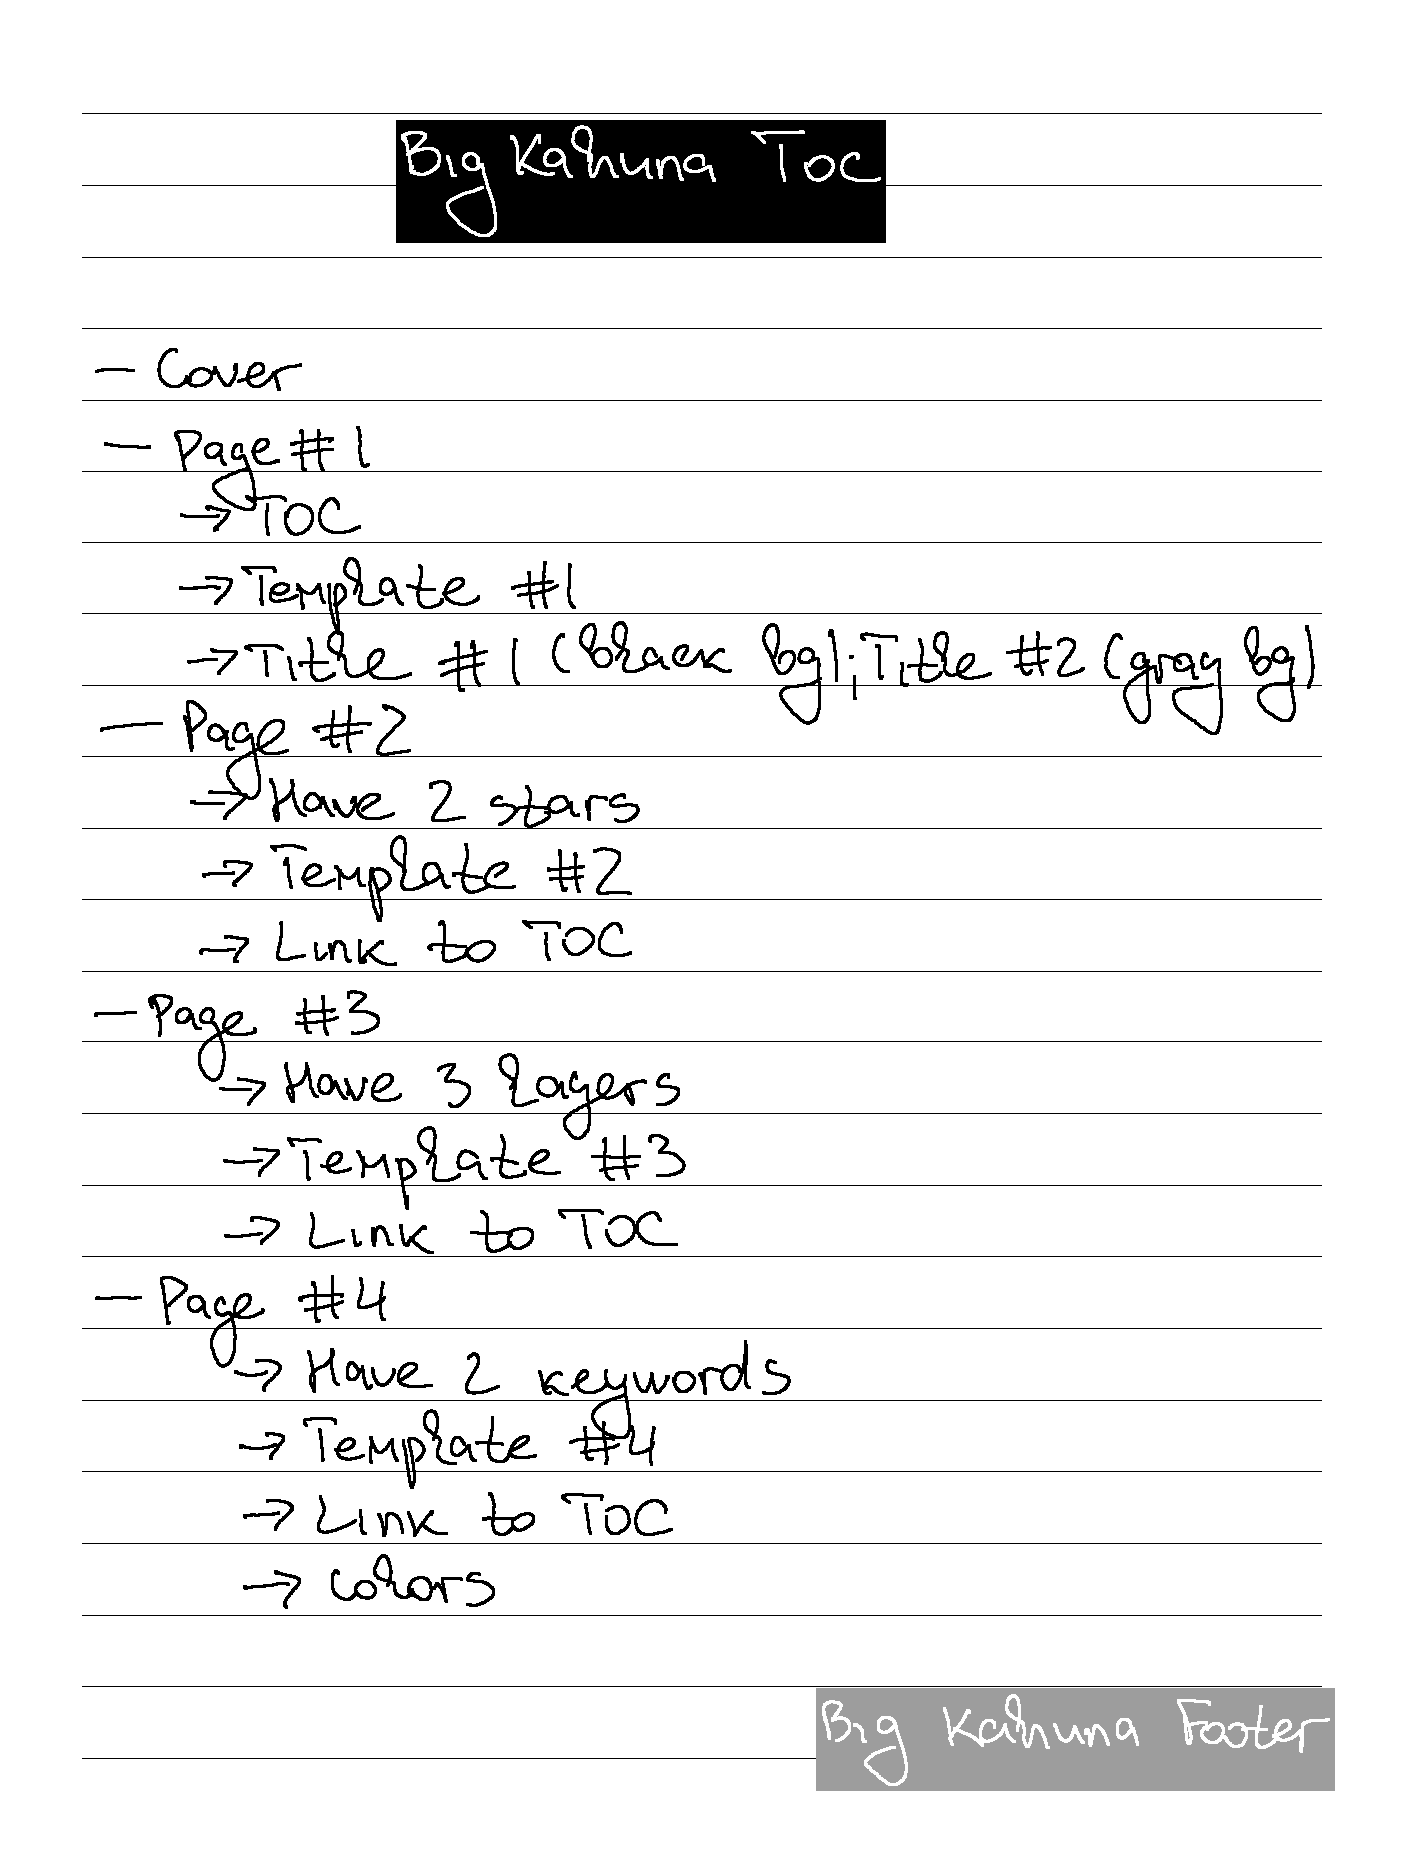 Big Kahuna TOC
— Cover
— Page #1
→ TOC
→ Template #1
→ Title #1 (black bg); Title #2 (gray bg)
— Page #2
→ Have 2 stars
→ Template #2
→ Link to TOC
— Page #3
→ Have 3 layers
→ Template #3
→ Link to TOC
— Page #4
→ Have 2 keywords
→ Template #4
→ Link to TOC
→ Colors
Big Kahuna Footer